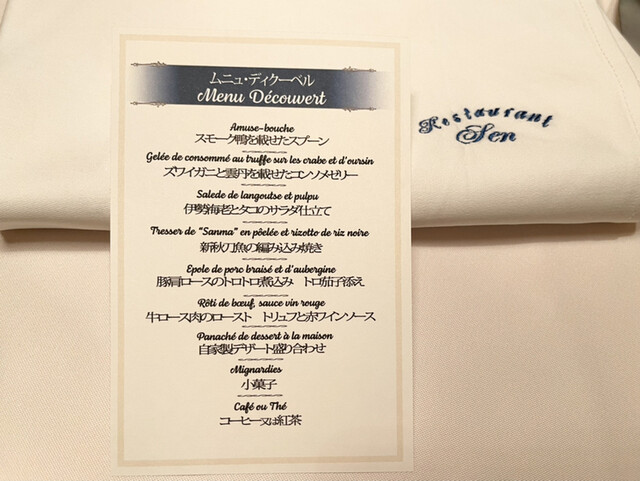 ムニュ・ディクーベル
Menu Découvert
Amuse-bouche
スモーク鴨を載せたスプーン
Gelée de consommé au truffe sur les crabe et d'oursin
ズワイガニと雲丹を載せたコンソメゼリー
Salede de langoutse et pulpu
伊勢海老とタコのサラダ仕立て
Tresser de "Sanma" en pôelée et rizotto de riz noire
新秋刀魚の編み込み焼き
Epole de porc braisé et d'aubergine
豚肩ロースのトロトロ煮込み トロ茄子添え
Rôti de bœuf, sauce vin rouge
牛ロース肉のロースト トリュフと赤ワインソース
Panaché de dessert à la maison
自家製デザート盛り合わせ
Mignardies
小菓子
Café ou Thé
コーヒー又は紅茶
Restaurant
Sen